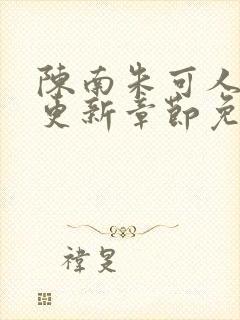 陳南朱可人
更新章節免
禕旻